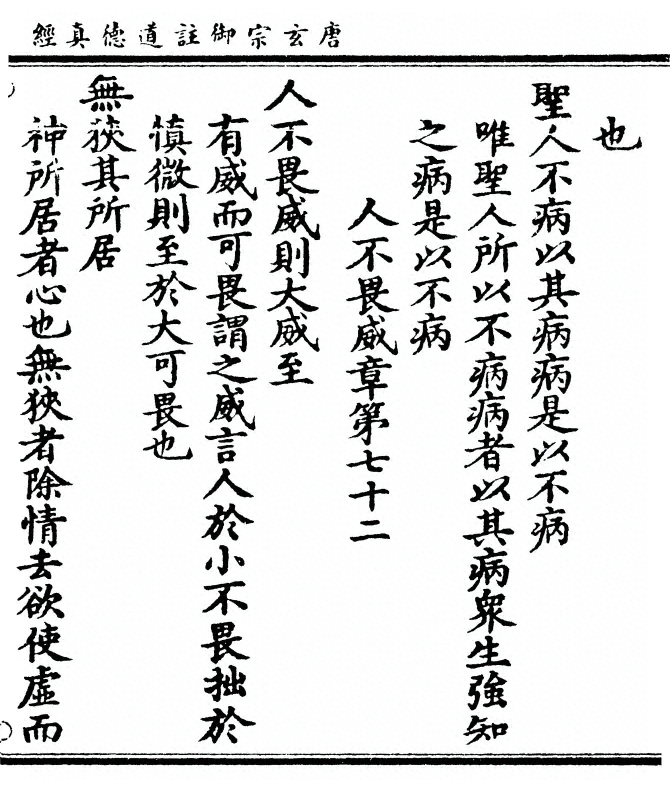 唐玄宗御註道德真經
也
聖人不病以其病病是以不病
唯聖人所以不病病者以其病衆生強知
之病是以不病
人不畏威章第七十二
人不畏威則大威至
有威而可畏謂之威言人於小不畏拙於
慎微則至於大可畏也
無狹其所居
神所居者心也無狹者除情去欲使虛而